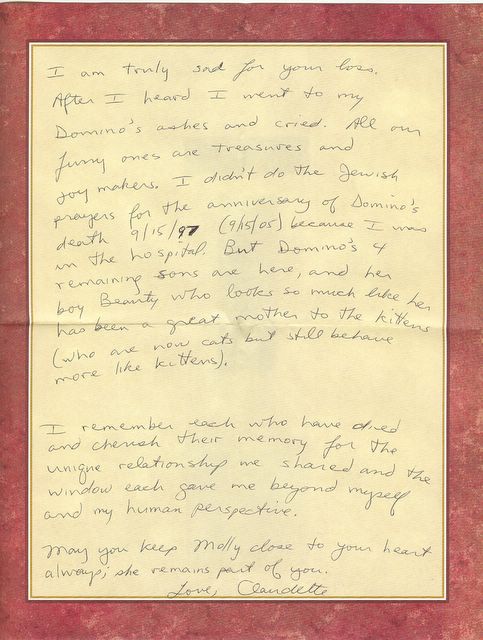 I am truly sad for your loss.
After I heard I went to my
Domino's ashes and cried. All our
furry ones are treasures and
joy makers. I didn't do the Jewish
prayers for the anniversary of Domino's
death 9/15/97 (9/15/05) because I was
in the hospital. But Domino's 4
remaining sons are here, and her
boy Beauty who looks so much like her
has been a great mother to the kittens
(who are now cats but still behave
more like kittens).
I remember each who have died
and cherish their memory for the
unique relationship we shared and the
window each gave me beyond myself
and my human perspective.
May you keep Molly close to your heart
always; she remains part of you.
Love, Claudette